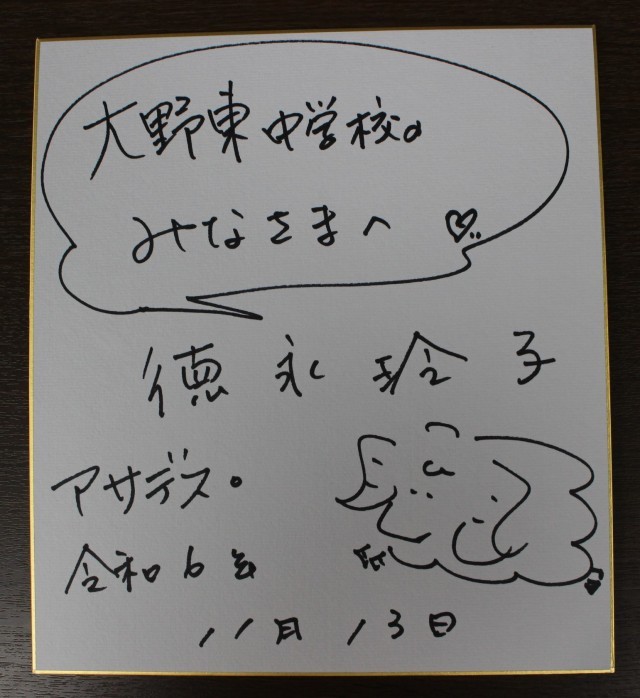 大野東中学校の
みなさまへ
徳永玲子
アサデス。
令和6年
11月13日